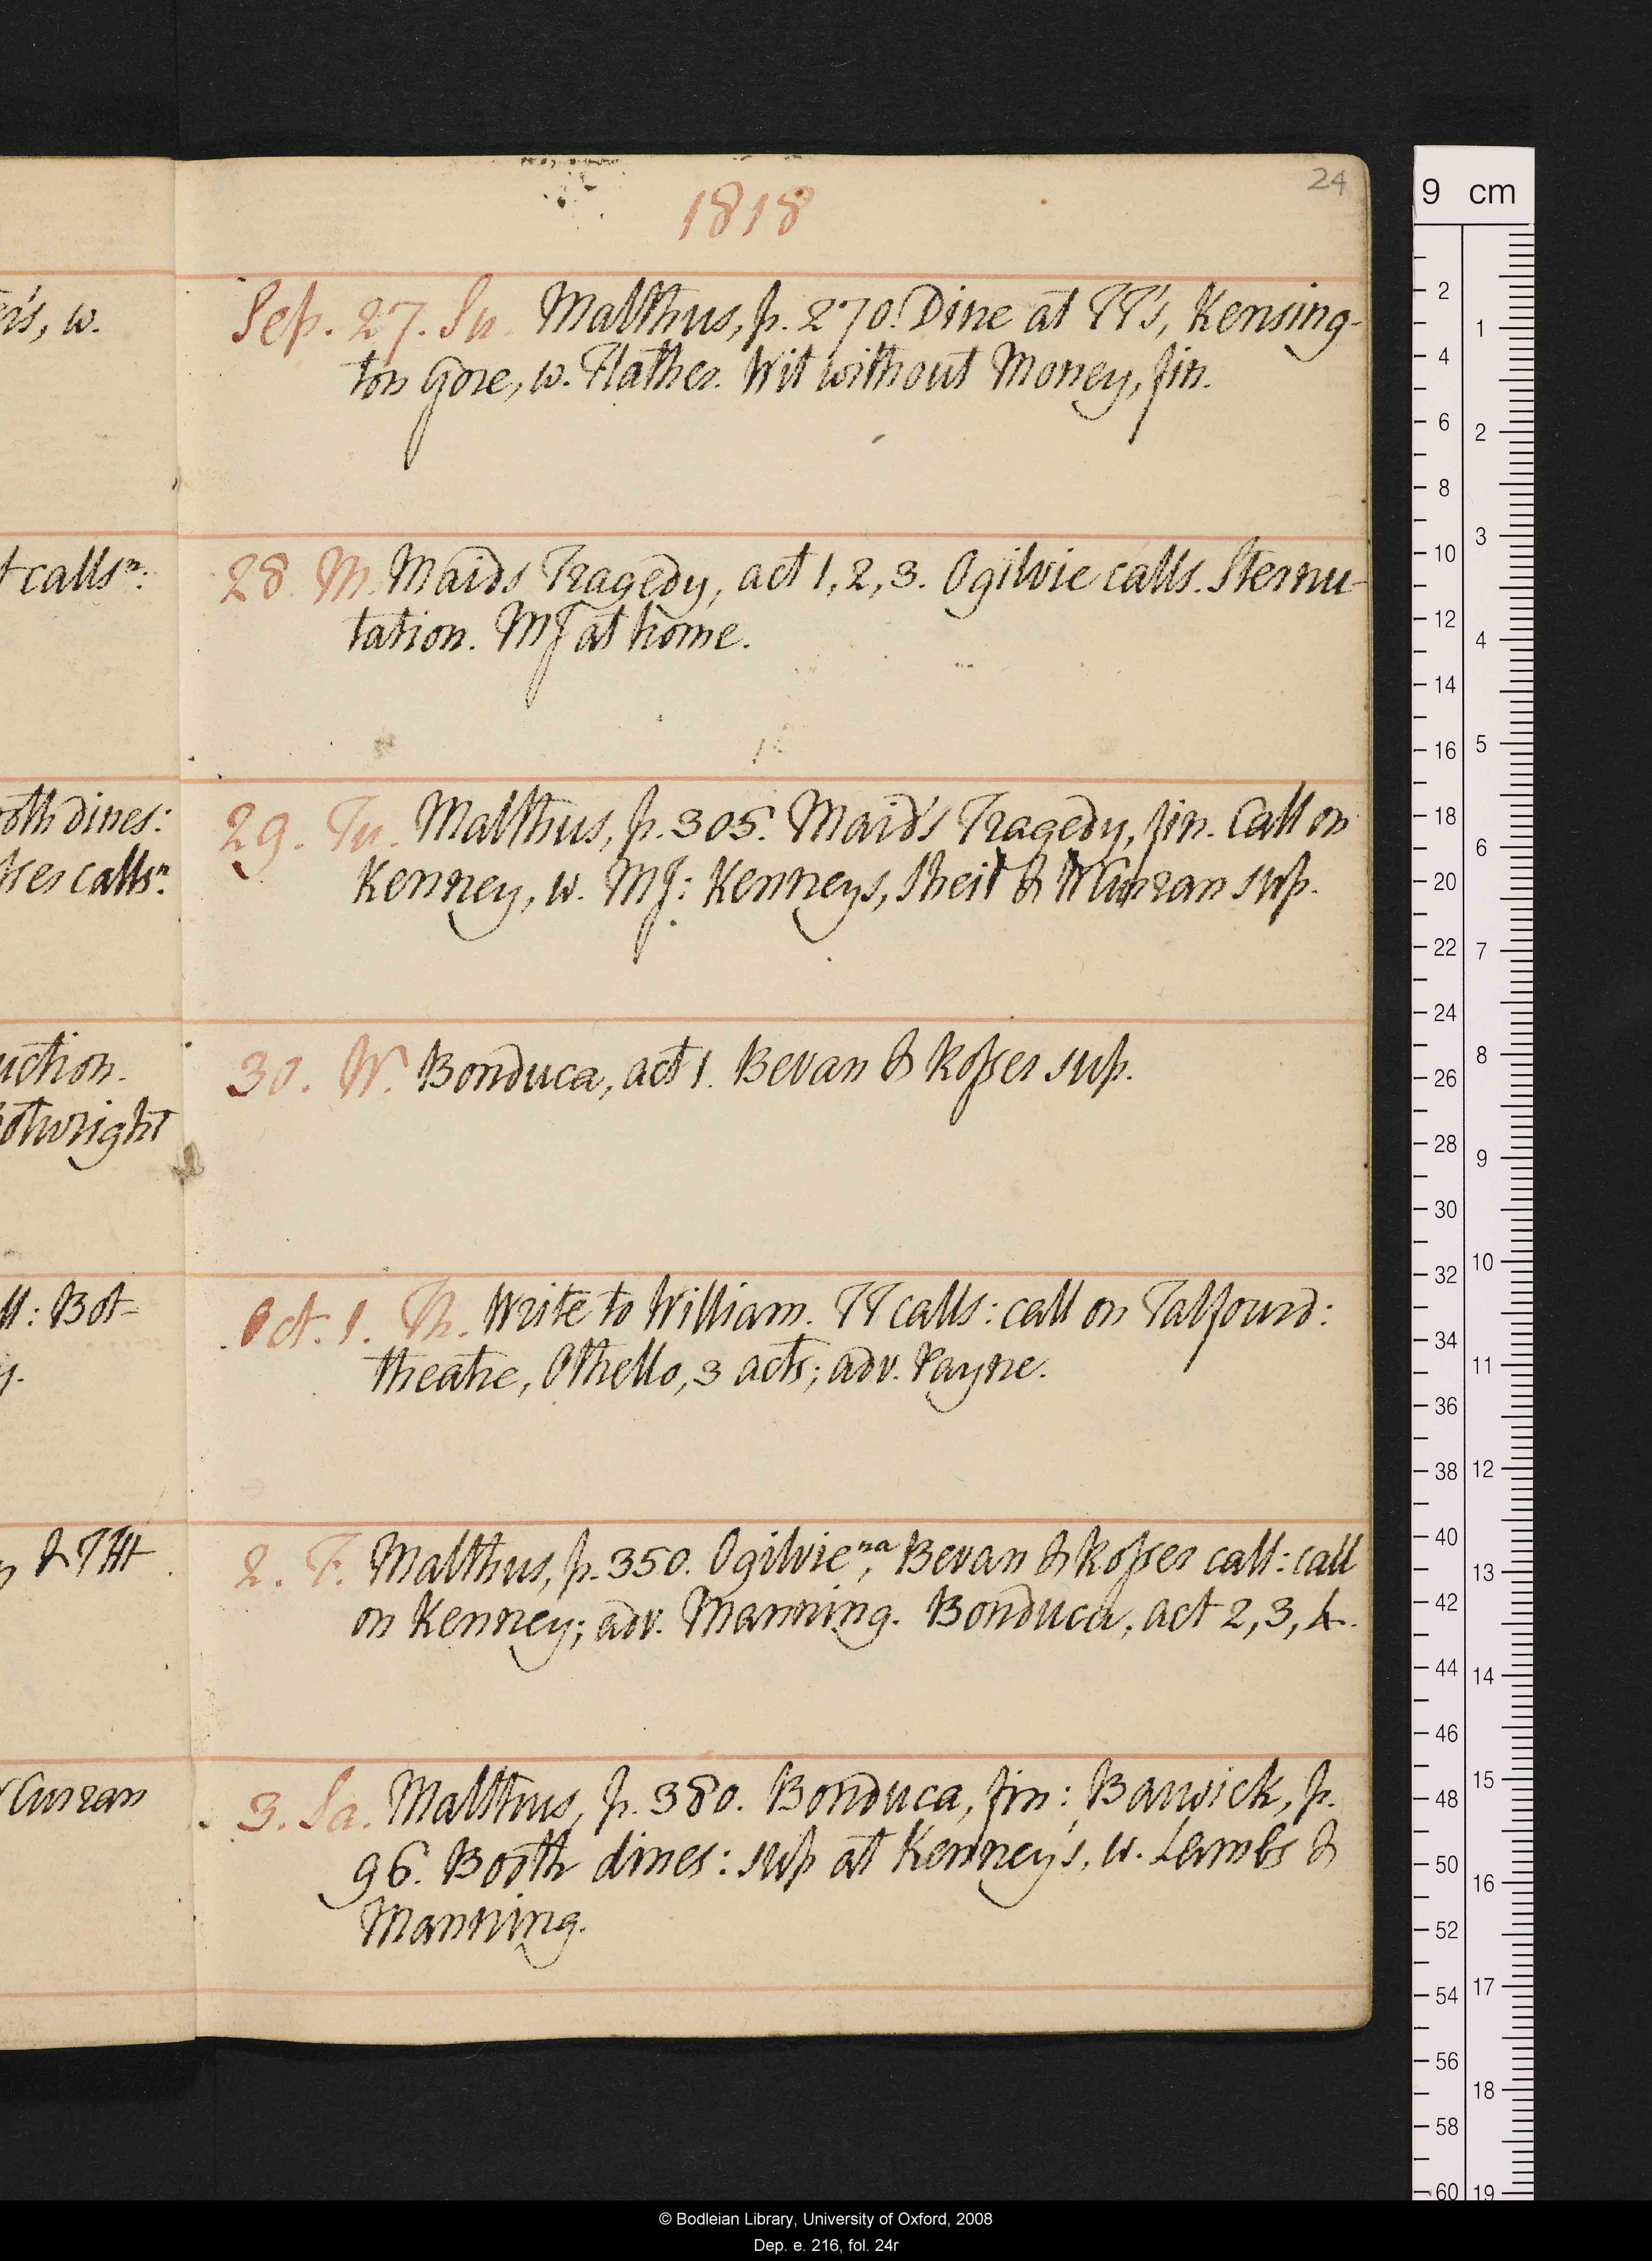 24
1818
er's, w.
Sep. 27. Su. Malthus, p. 270. Dine at TT's, Kensing-
ton Gore, w. Flather. Wit without Money, fin.
t callsn:
28. M. Maids Tragedy, act 1, 2, 3. Ogilvie calls. Sternu-
tation. MJ at home.
oth dines:
sser callsn.
29. Tu. Malthus, p. 305. Maid's Tragedy, fin. Call on
Kenney, w. MJ: Kenneys, Sheil & W Curran sup.
uction.
30. W. Bonduca, act 1. Bevan & Rosser sup.
otwright
ll: Bot=
Oct. 1. Th. Write to William. TT calls: call on Talfourd:
theatre, Othello, 3 acts; adv. Payne.
y.
& THt
2. F. Malthus, p. 350. Ogilvie na, Bevan & Rosser call: call
on Kenney; adv. Manning. Bonduca, act 2, 3, 4.
Curran
3. Sa. Malthus, p. 380. Bonduca, fin: Barwick, p.
96. Booth dines: sup at Kenney's, w. Lambs &
Manning.
9 cm
2 4 6 8 10 12 14 16 18 20 22 24 26 28 30 32 34 36 38 40 42 44 46 48 50 52 54 56 58 60
1 2 3 4 5 6 7 8 9 10 11 12 13 14 15 16 17 18 19
© Bodleian Library, University of Oxford, 2008
Dep. e. 216, fol. 24r